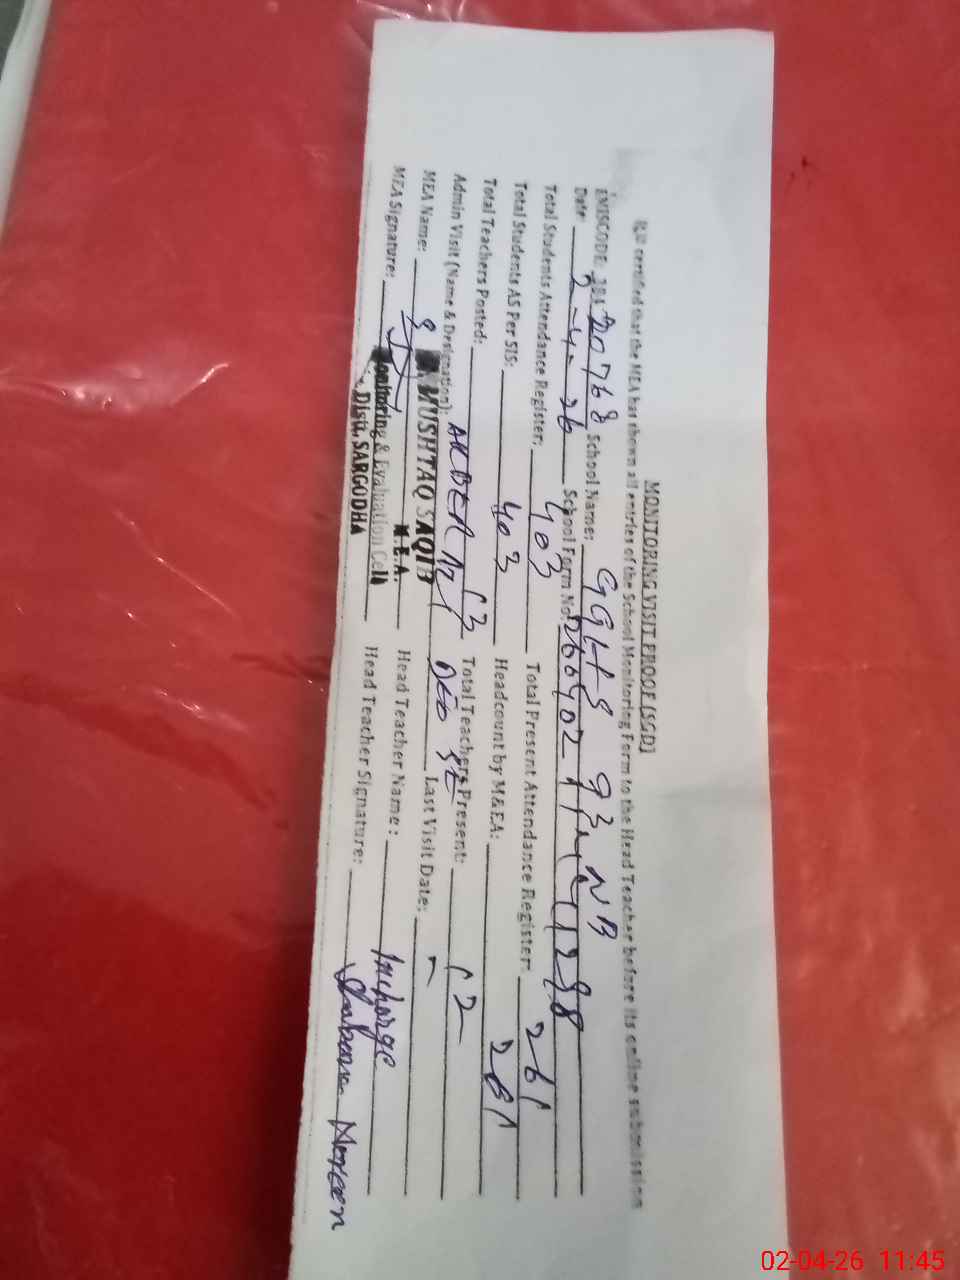 MONITORING VISIT PROOF (SGD)
It is certified that the MEA has shown all entries of the School Monitoring Form to the Head Teacher before its online submission
EMISCODE: 38420768 School Name: GGHS 93 NB
Date: 2-4-26 School Form No:
Total Students Attendance Register: 403 Total Present Attendance Register: 261
Total Students AS Per SIS: 403 Headcount by M&EA: 261
Total Teachers Posted: 13 Total Teachers Present: 12
Admin Visit (Name & Designation): AKBER DEO SE Last Visit Date: -
MEA Name: MUSHTAQ SAQIB Head Teacher Name: Incharge
M.E.A.
MEA Signature: Head Teacher Signature: Shabana Noreen
Monitoring & Evaluation Cell
Distt. SARGODHA
02-04-26 11:45